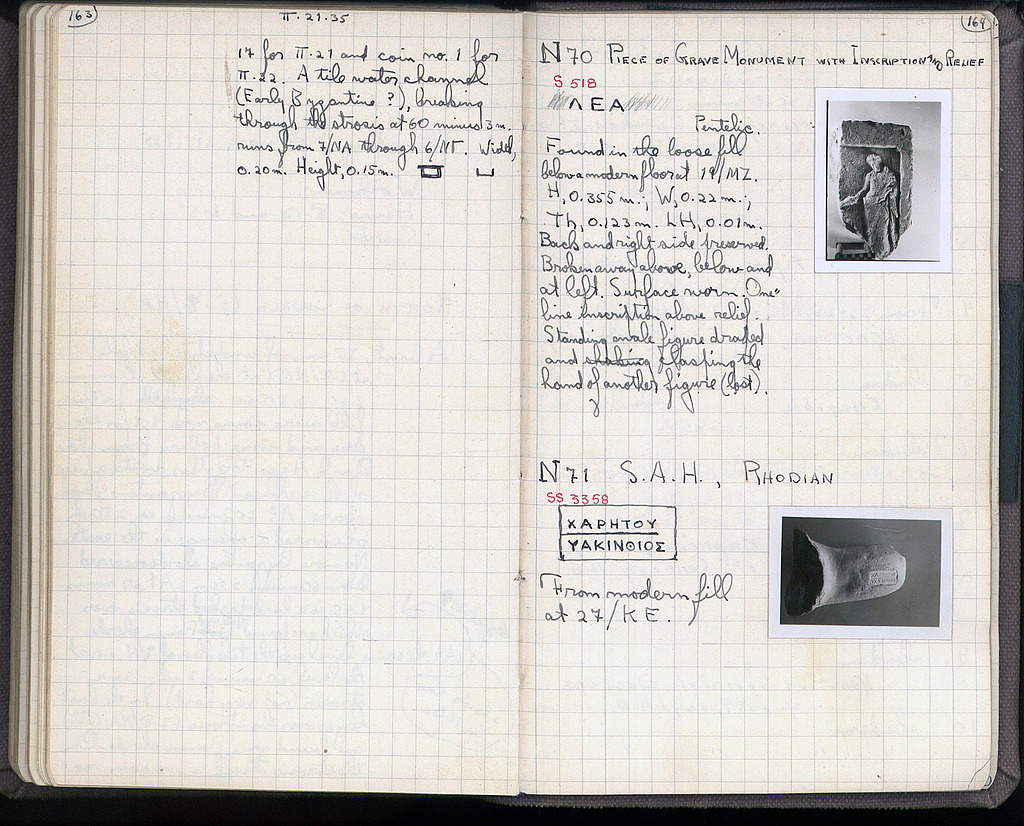 163
II·21·35
17 for II·21 and coin no. 1 for
II·22. A tile water channel
(Early Byzantine ?), breaking
through the strosis at 60 minus 3 m.
runs from 7/NA through 6/NΓ. Width,
0.20m. Height, 0.15m.
164
N70 PIECE OF GRAVE MONUMENT WITH INSCRIPTION AND RELIEF
S 518
ΛΕΑ
Pentelic.
Found in the loose fill
below a modern floor at 19/MZ.
H, 0.355 m.; W, 0.22 m.;
Th, 0.123 m. LH, 0.01m.
Back and right side preserved.
Broken away above, below and
at left. Surface worn. One-
line inscription above relief.
Standing male figure draped
and shaking clasping the
hand of another figure (lost).
N71 S.A.H., RHODIAN
SS 3358
ΧΑΡΗΤΟΥ
ΥΑΚΙΝΘΙΟΣ
From modern fill
at 27/KE.